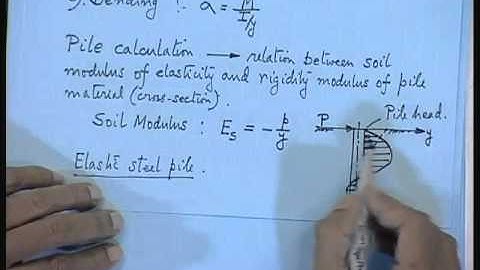 g. Bending :- a = M/I/y
Pile calculation → relation between soil
modulus of elasticity and rigidity modulus of pile
material (cross-section).
Soil Modulus : Es = - p/y
P
Pile head.
y
Elastic steel pile.